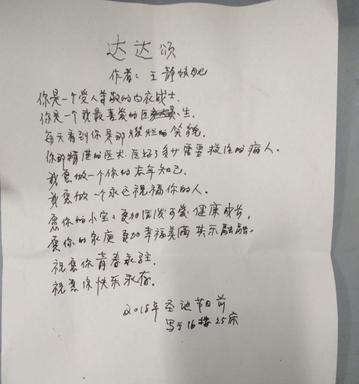 达达颂
作者：王静
你是一个受人尊敬的白衣战士.
你是一个我最喜爱的医生.
每天看到你总是那灿烂的笑貌.
你那精湛的医术医好了多少需要救治的病人.
我愿做一个你的老年知己.
我愿做一个永远祝福你的人.
愿你的小宝宝更加活泼可爱健康成长,
愿你的家庭更加幸福美满其乐融融。
祝愿你青春永驻.
祝愿你快乐永存.
2015年圣诞节日前
写于16楼25床